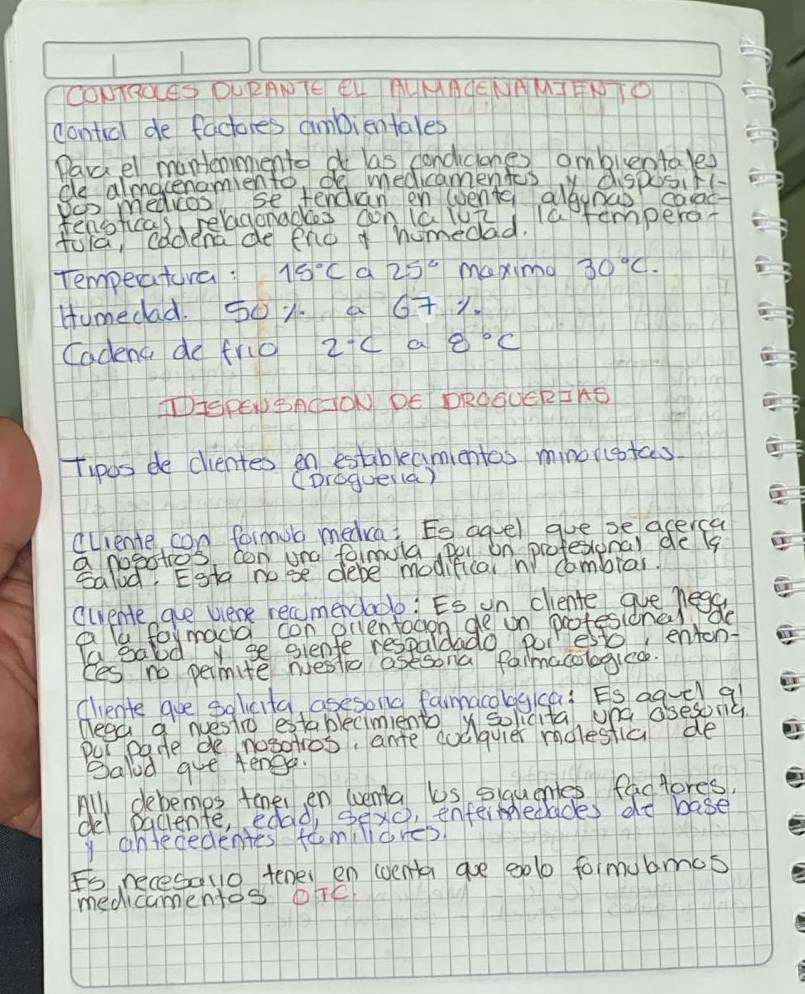 CONTROLES DURANTE EL ALMACENAMIENTO
Control de factores ambientales
Para el mantenimiento de las condiciones ambientales
de almacenamiento, de medicamentos y dispositi-
vos medicos, se tendran en cuenta algunas carac-
teristicas relacionadas con la luz, la tempera-
tura, cadena de frio y humedad.
Temperatura: 15°C a 25° maximo 30°C.
Humedad. 50 % a 67 %.
Cadena de frio 2°C a 8°C
DISPENSACION DE DROGUERIAS
Tipos de clientes en establecimientos minoristas
(Drogueria)
Cliente con formula medica: Es aquel que se acerca
a nosotros con una formula por un profesional de la
salud. Esta no se debe modificar ni cambiar.
Cliente que viene recomendado: Es un cliente que llega
a la farmacia con orientacion de un profesional de
la salud y se siente respaldado por esto, enton-
ces no permite nuestra asesoria farmacologica.
Cliente que solicita asesoria farmacologica: Es aquel q'
llega a nuestro establecimiento y solicita una asesoria
por parte de nosotros, ante cualquier molestia de
salud que tenga.
Alli debemos tener en cuenta los siguientes factores,
del paciente, edad, sexo, enfermedades de base
y antecedentes familiares.
Es necesario tener en cuenta que solo formulamos
medicamentos OTC.